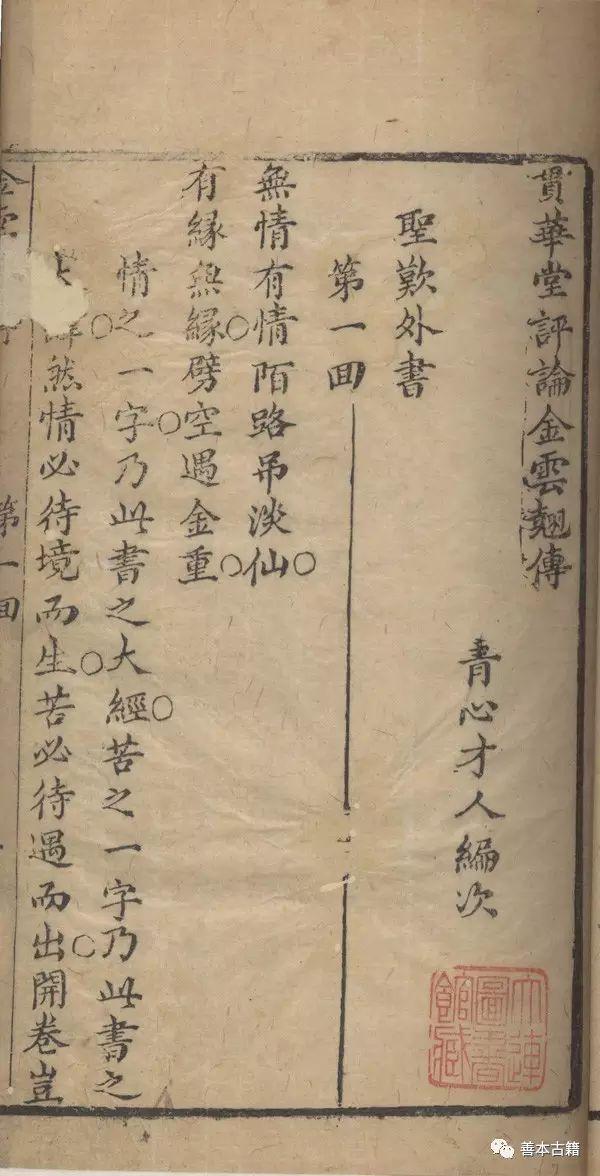 貫華堂評論金雲翹傳
青心才人編次
聖歎外書
第一回
無情有情陌路吊淡仙○
有緣無緣○劈空遇金重○
情之一字○乃此書之大經○苦之一字乃此書之
○然情必待境而生○苦必待遇而出○開卷豈
第一回
大連圖書館藏
善本古籍